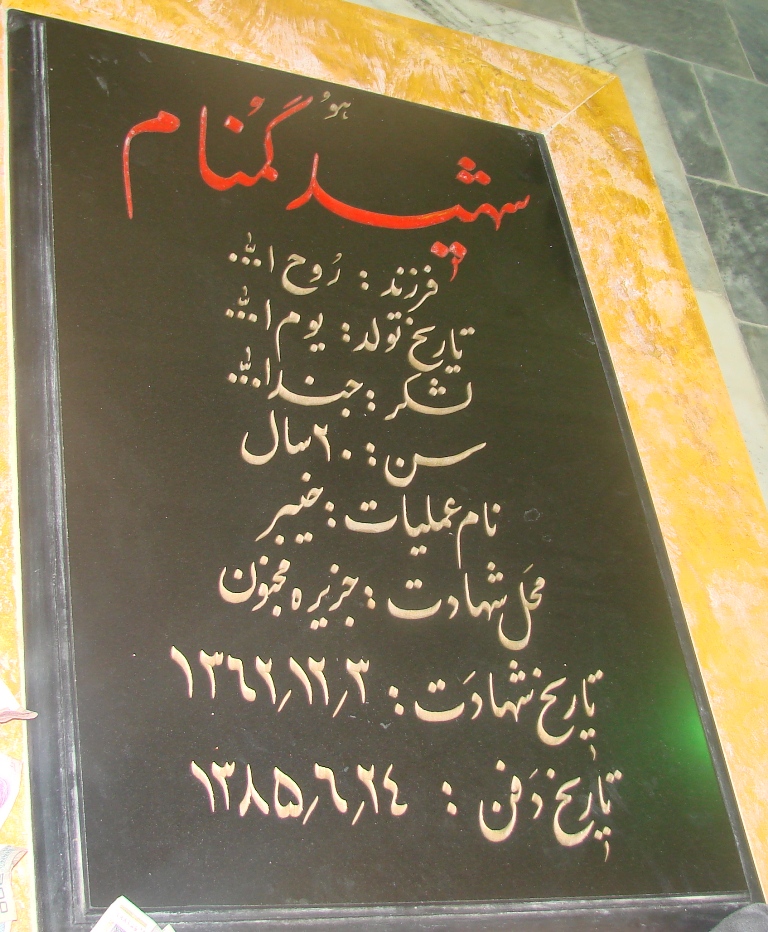 هوُ
شهید گمنام
فرزند : رُوح ا...
تاریخ تولد : یوم ا...
لشکر : جندا...
سن : ۲۰ سال
نام عملیات : خیبر
محل شهادت : جزیره مجنون
تاریخ شهادَت : ۱۳۶۲٫۱۲٫۳
تاریخ دَفن : ۱۳۸۵٫۶٫۲۴